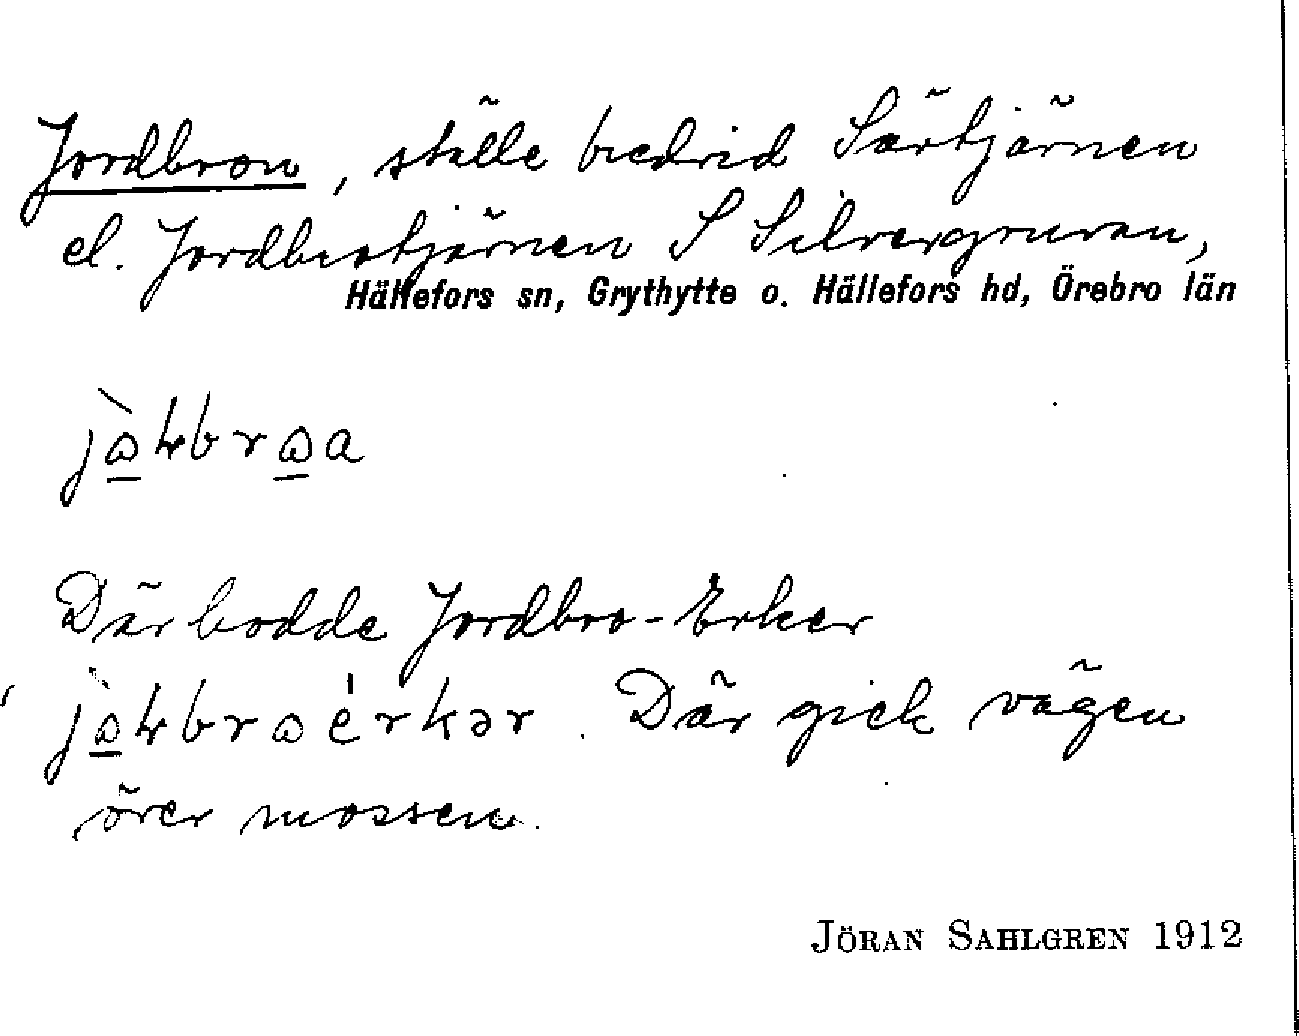 Jordbron, ställe bredvid Särtjärnen
el. Jordbrotjärnen S Silvergruvan,
Hällefors sn, Grythytte o. Hällefors hd, Örebro län
Där bodde Jordbro-Erker
Där gick vägen
över mossen.
JÖRAN SAHLGREN 1912